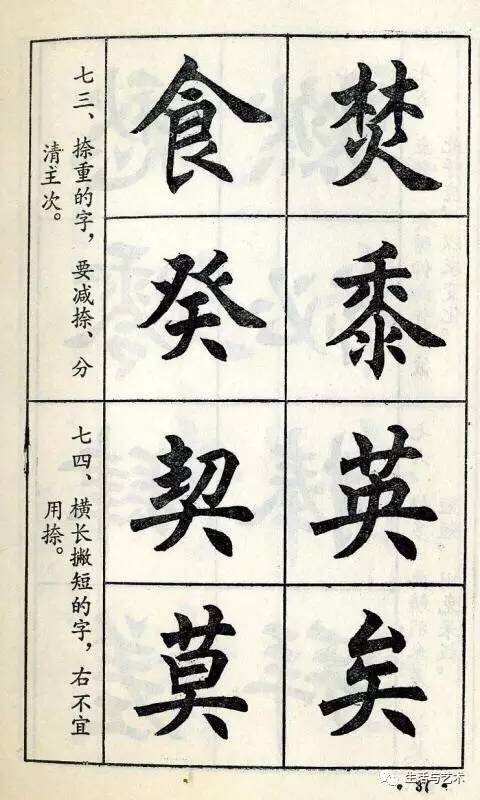 焚黍
食癸
七三、捺重的字，要减捺、分
清主次。
英矣
契莫
七四、横长撇短的字，右不宜
用捺。
生活与艺术
· 37 ·